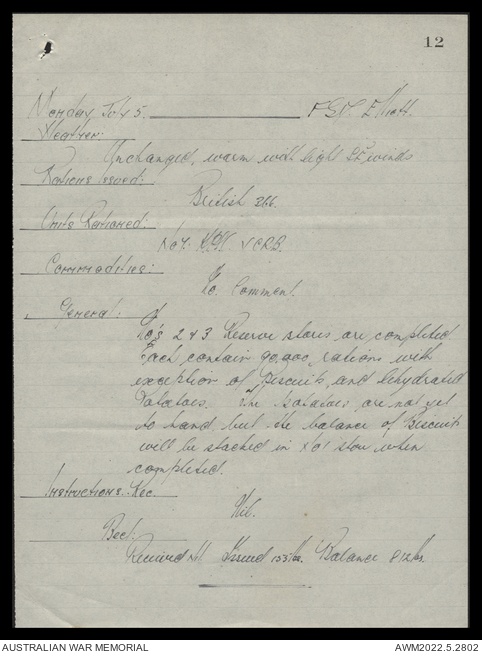 12
Monday July 5. FSD. Elliott.
Weather:
Unchanged, warm with light SE winds
Rations Issued:
British 266
Units Rationed:
No 7.
Commodities:
No Comment.
General:
No's 2 & 3 Reserve stores are completed
Each contain 90,000 rations with
exception of Biscuits and dehydrated
Potatoes. The potatoes are not yet
to hand but the balance of Biscuits
will be stacked in No 1 store when
completed.
Instructions Rec.
Nil.
Beef:
Received Nil Issued 133 lbs. Balance 812 lbs.
AUSTRALIAN WAR MEMORIAL
AWM2022.5.2802